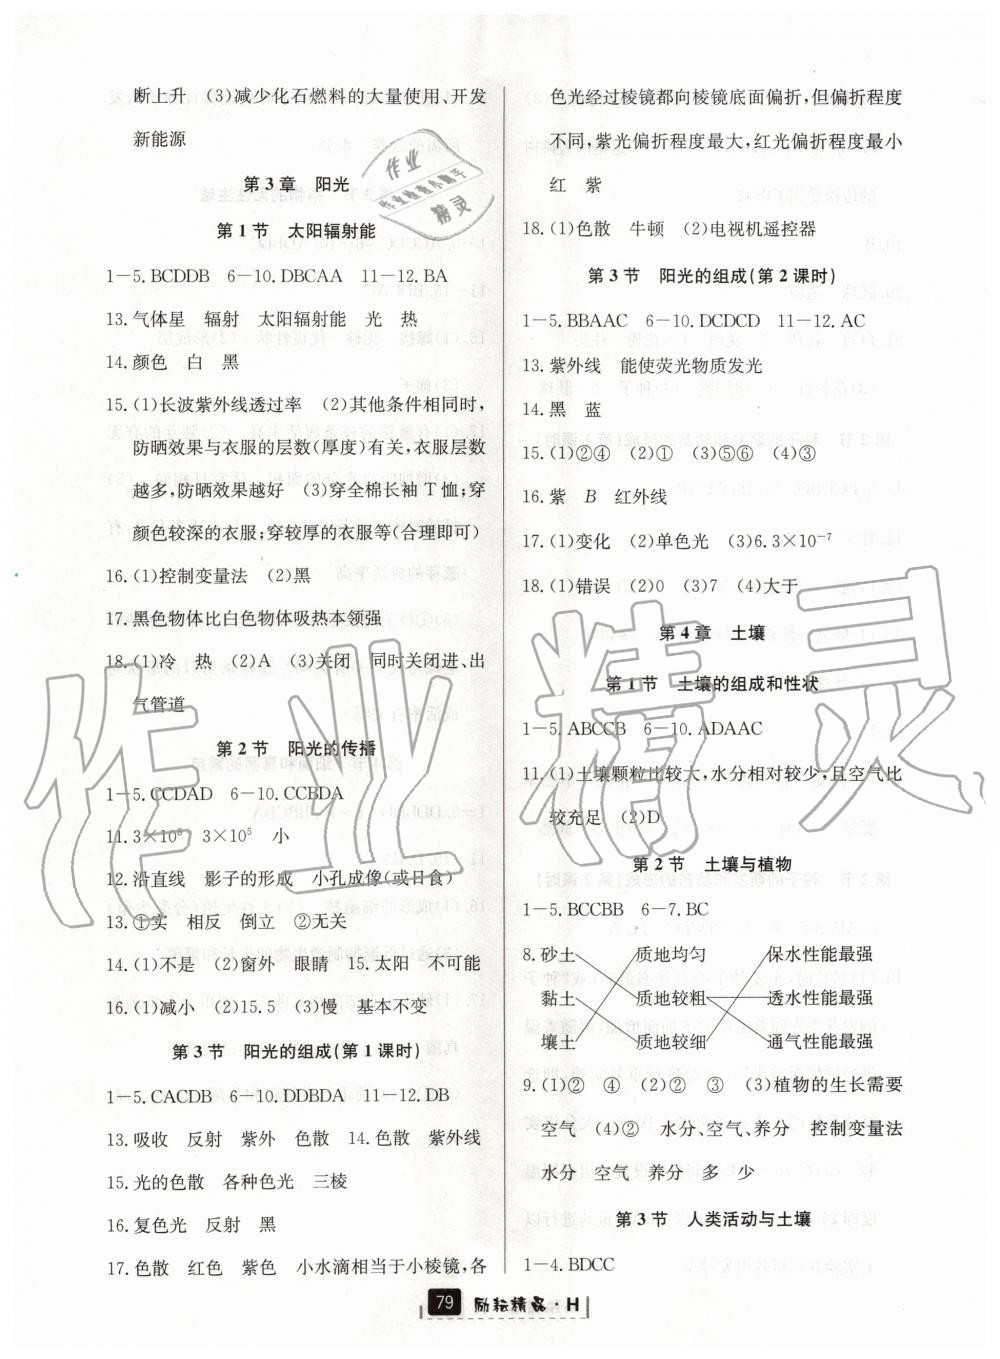 断上升　(3)减少化石燃料的大量使用、开发
新能源
第 3 章　阳光
第 1 节　太阳辐射能
1—5. BCDDB　6—10. DBCAA　11—12. BA
13. 气体星　辐射　太阳辐射能　光　热
14. 颜色　白　黑
15. (1)长波紫外线透过率　(2)其他条件相同时,
防晒效果与衣服的层数(厚度)有关,衣服层数
越多,防晒效果越好　(3)穿全棉长袖 T 恤;穿
颜色较深的衣服;穿较厚的衣服等(合理即可)
16. (1)控制变量法　(2)黑
17. 黑色物体比白色物体吸热本领强
18. (1)冷　热　(2)A　(3)关闭　同时关闭进、出
气管道
第 2 节　阳光的传播
1—5. CCDAD　6—10. CCBDA
11. 3×10⁸　3×10⁵　小
12. 沿直线　影子的形成　小孔成像(或日食)
13. ①实　相反　倒立　②无关
14. (1)不是　(2)窗外　眼睛　15. 太阳　不可能
16. (1)减小　(2)15.5　(3)慢　基本不变
第 3 节　阳光的组成(第 1 课时)
1—5. CACDB　6—10. DDBDA　11—12. DB
13. 吸收　反射　紫外　色散　14. 色散　紫外线
15. 光的色散　各种色光　三棱
16. 复色光　反射　黑
17. 色散　红色　紫色　小水滴相当于小棱镜,各
色光经过棱镜都向棱镜底面偏折,但偏折程度
不同,紫光偏折程度最大,红光偏折程度最小
红　紫
18. (1)色散　牛顿　(2)电视机遥控器
第 3 节　阳光的组成(第 2 课时)
1—5. BBAAC　6—10. DCDCD　11—12. AC
13. 紫外线　能使荧光物质发光
14. 黑　蓝
15. (1)②④　(2)①　(3)⑤⑥　(4)③
16. 紫　B　红外线
17. (1)变化　(2)单色光　(3)6.3×10⁻⁷
18. (1)错误　(2)0　(3)7　(4)大于
第 4 章　土壤
第 1 节　土壤的组成和性状
1—5. ABCCB　6—10. ADAAC
11. (1)土壤颗粒比较大,水分相对较少,且空气比
较充足　(2)D
第 2 节　土壤与植物
1—5. BCCBB　6—7. BC
8. 砂土　质地均匀　保水性能最强
黏土　质地较粗　透水性能最强
壤土　质地较细　通气性能最强
9. (1)②　④　(2)②　③　(3)植物的生长需要
空气　(4)②　水分、空气、养分　控制变量法
水分　空气　养分　多　少
第 3 节　人类活动与土壤
1—4. BDCC
79　励耘精品·H
作业
作业检查小助手
精灵
作业精灵